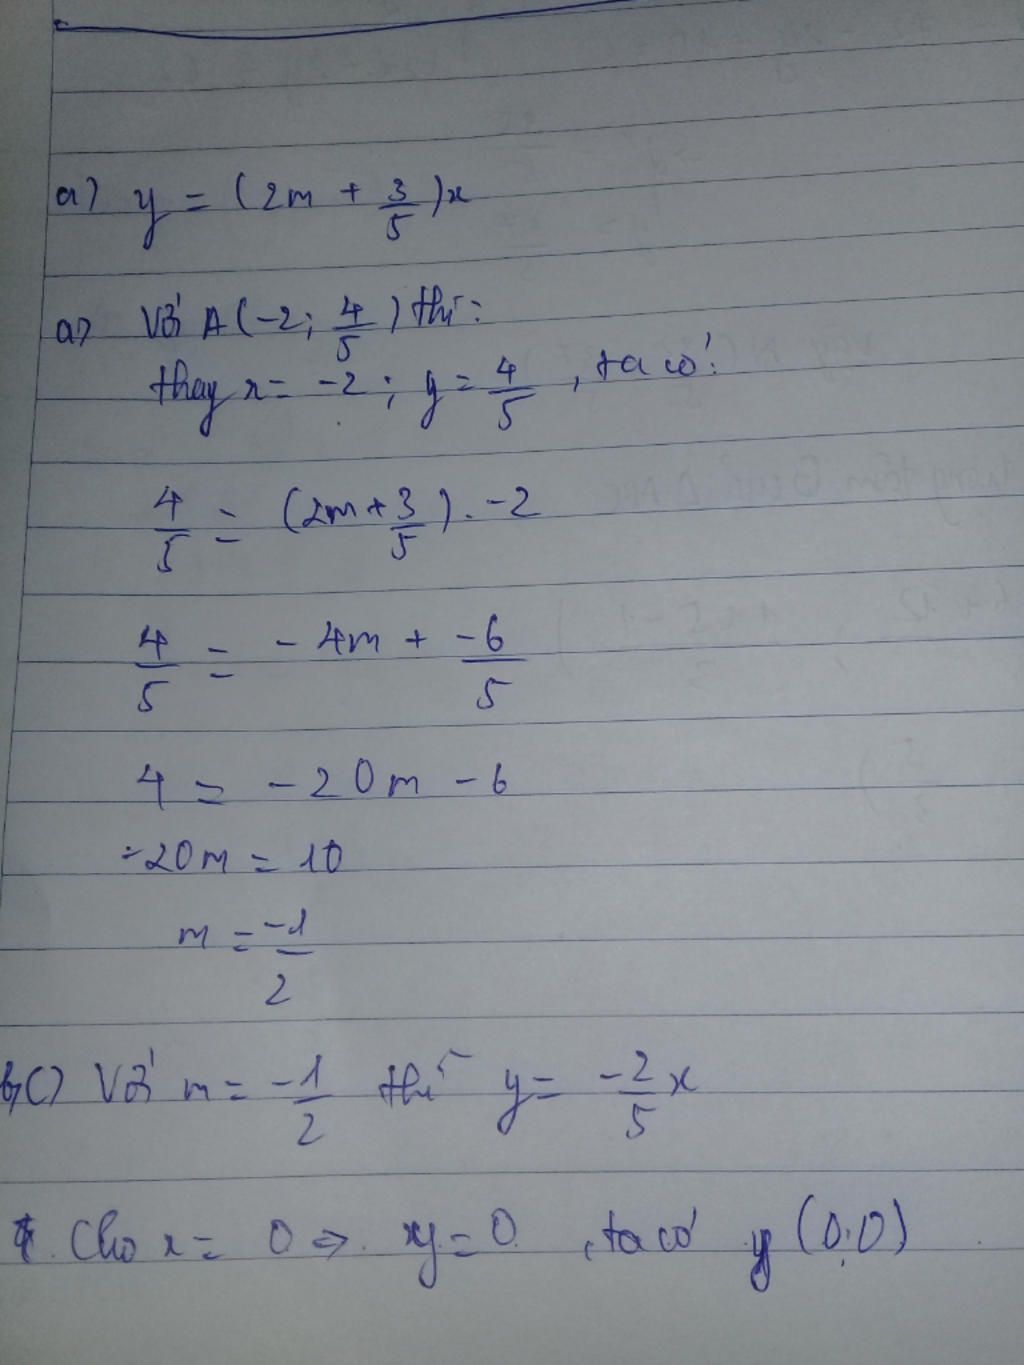 a) y = (2m + 3/5)x
a) Với A(-2; 4/5) thì:
thay x = -2; y = 4/5, ta có:
4/5 = (2m + 3/5). -2
4/5 = -4m + -6/5
4 = -20m - 6
-20m = 10
m = -1/2
b,c) Với m = -1/2 thì y = -2/5 x
Cho x = 0 => y = 0, ta có y (0;0)